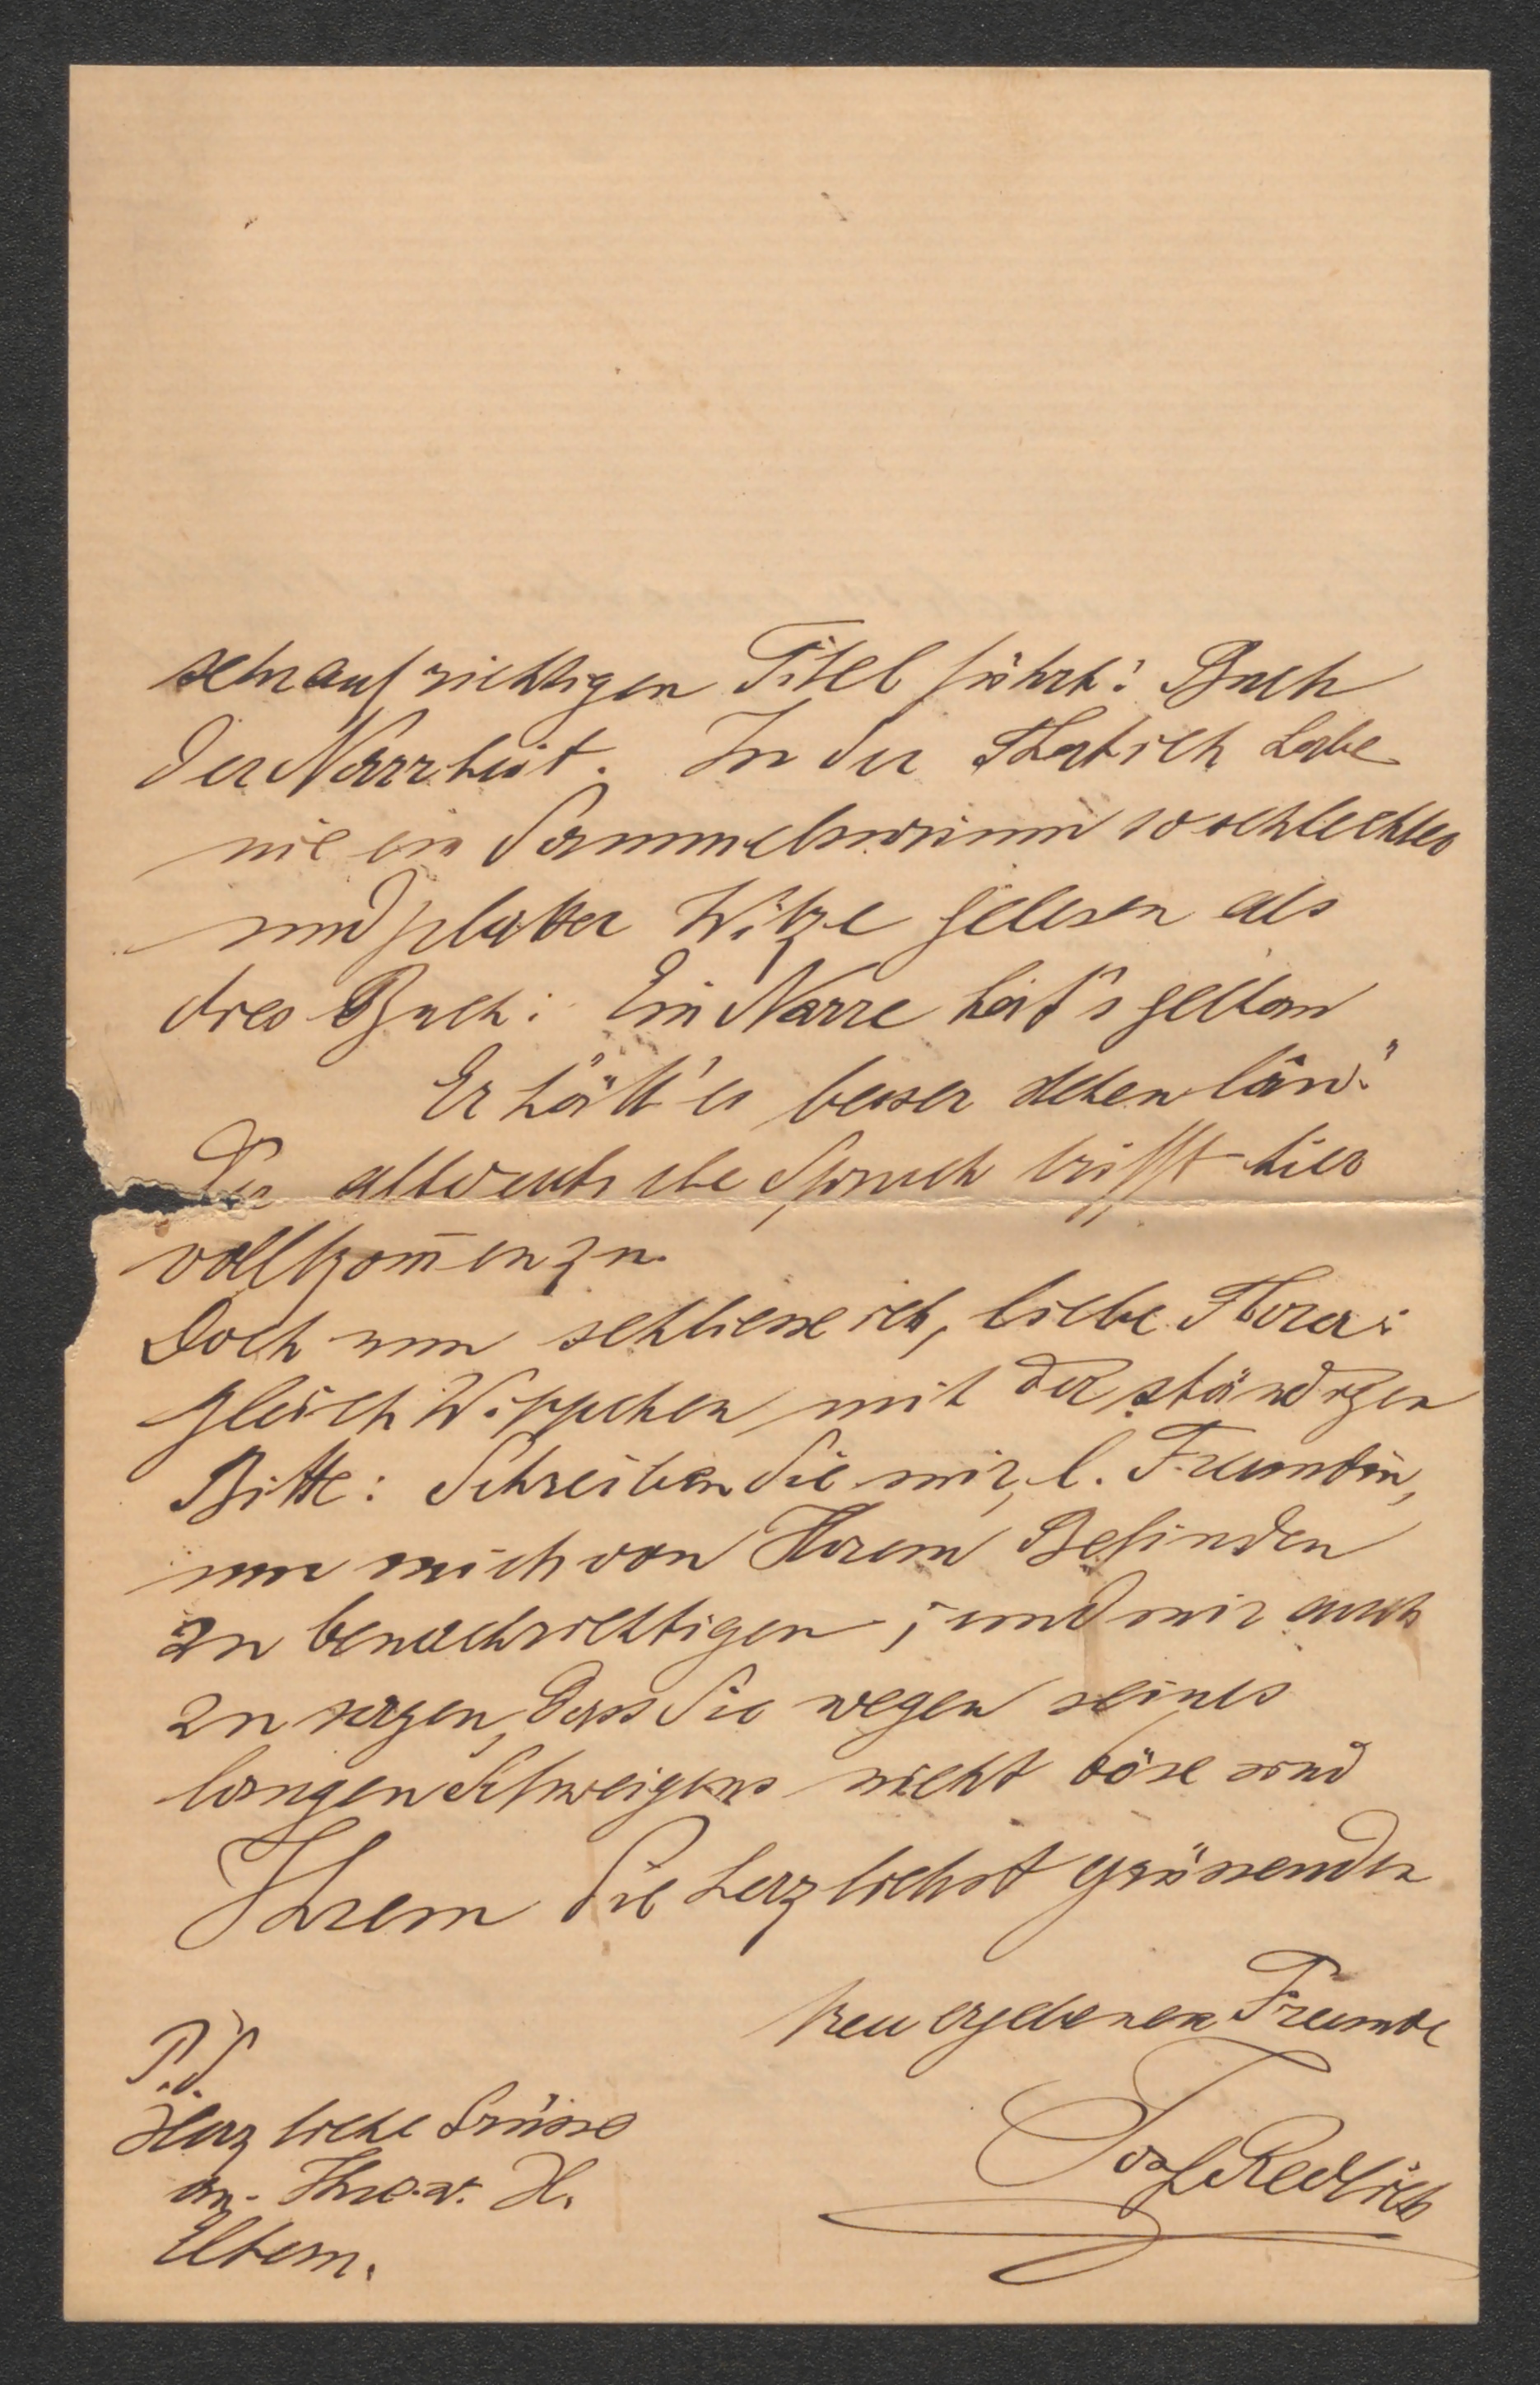 sehr aufrichtigen Titel führt: Buch
der Narrheit. In der That ich habe
nie ein Sammelsurium so schlechter
und platter Witze gelesen als
dies Buch: Ein Narre hat's gethan
Er hätt' es besser stehen lân."
Der altdeutsche Spruch trifft hier
vollkom̄en zu.
Doch nun schliesse ich, liebe Flora:
gleich Wippchen, mit der ständigen
Bitte: Schreiben Sie mir, l. Freundin,
um mich von Ihrem Befinden
zu benachrichtigen; und mir auch
zu sagen, dass Sie wegen seines
langen Schweigens nicht böse sind
Ihrem Sie herzlichst grüssenden
treu ergebenen Freunde
Josef Redlich
P.S.
Herzliche Grüsse
an Ihre w. H.
Eltern.